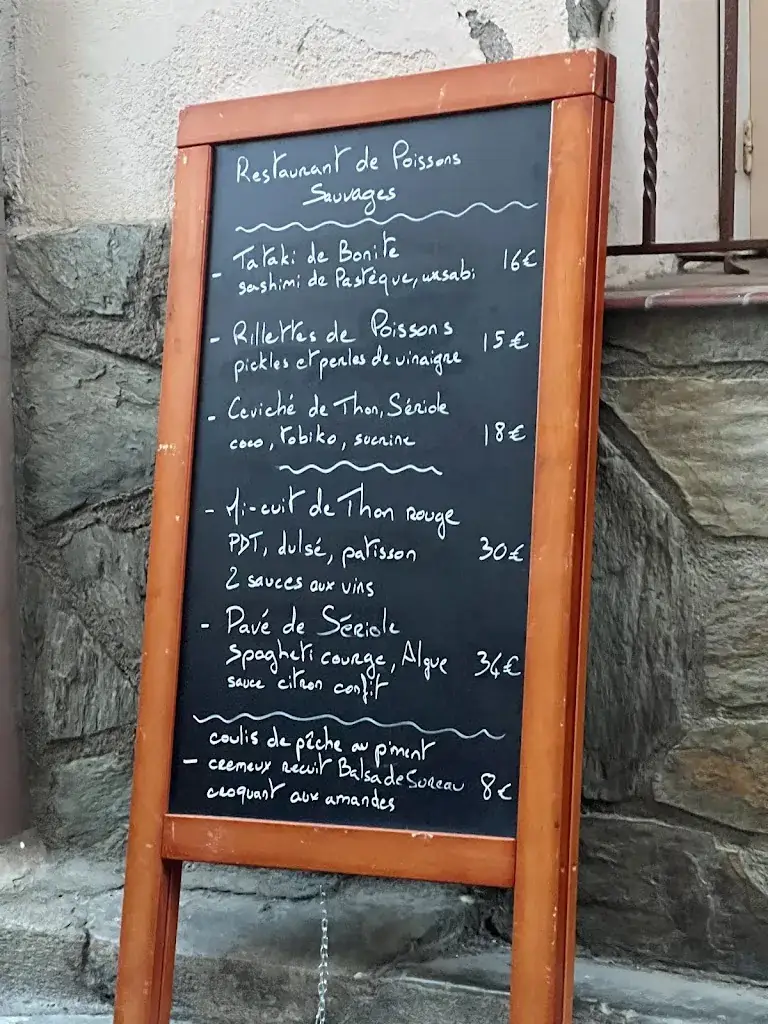 Restaurant de Poissons
Sauvages
- Tataki de Bonite 16€
sashimi de Pastèque, wasabi
- Rillettes de Poissons 15€
pickles et perles de vinaigre
- Ceviché de Thon, Sériole
coco, tobiko, sucrine 18€
- Mi-cuit de Thon rouge
PDT, dulsé, patisson 30€
2 sauces aux vins
- Pavé de Sériole
spagheti courge, Algue 34€
sauce citron confit
coulis de pêche au piment
- cremeux recuit Balsa de Sureau 8€
croquant aux amandes